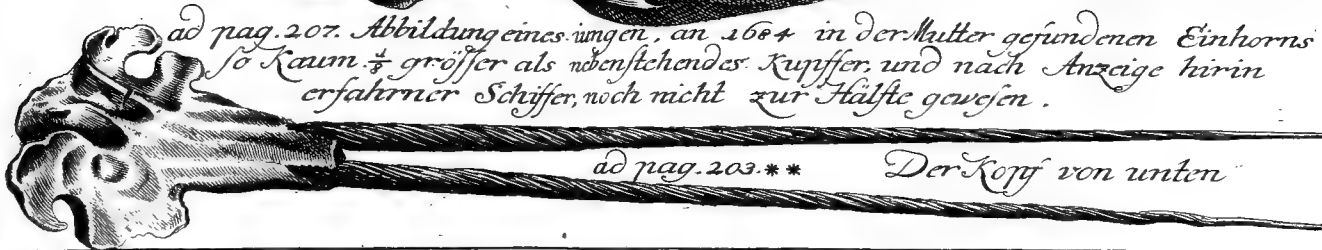 ad pag. 207. Abbildung eines iungen, an 1684 in der Mutter gefundenen Einhorns
so Kaum ⅛ grösser als nebenstehendes Kupffer, und nach Anzeige hirin
erfahrner Schiffer, noch nicht zur Hälfte gewesen.
ad pag. 203. ** Der Kopf von unten